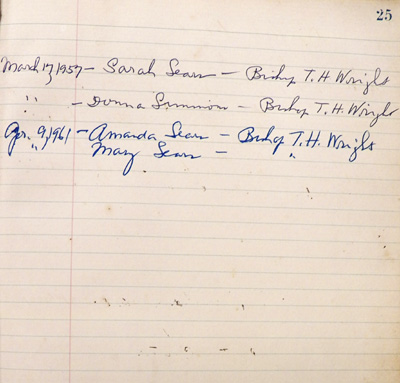 25
March 17, 1957 - Sarah Sears - Bishop T. H. Wright
" - Donna Simmons - Bishop T. H. Wright
Apr. 9, 1961 - Amanda Sears - Bishop T. H. Wright
" Mary Sears - "